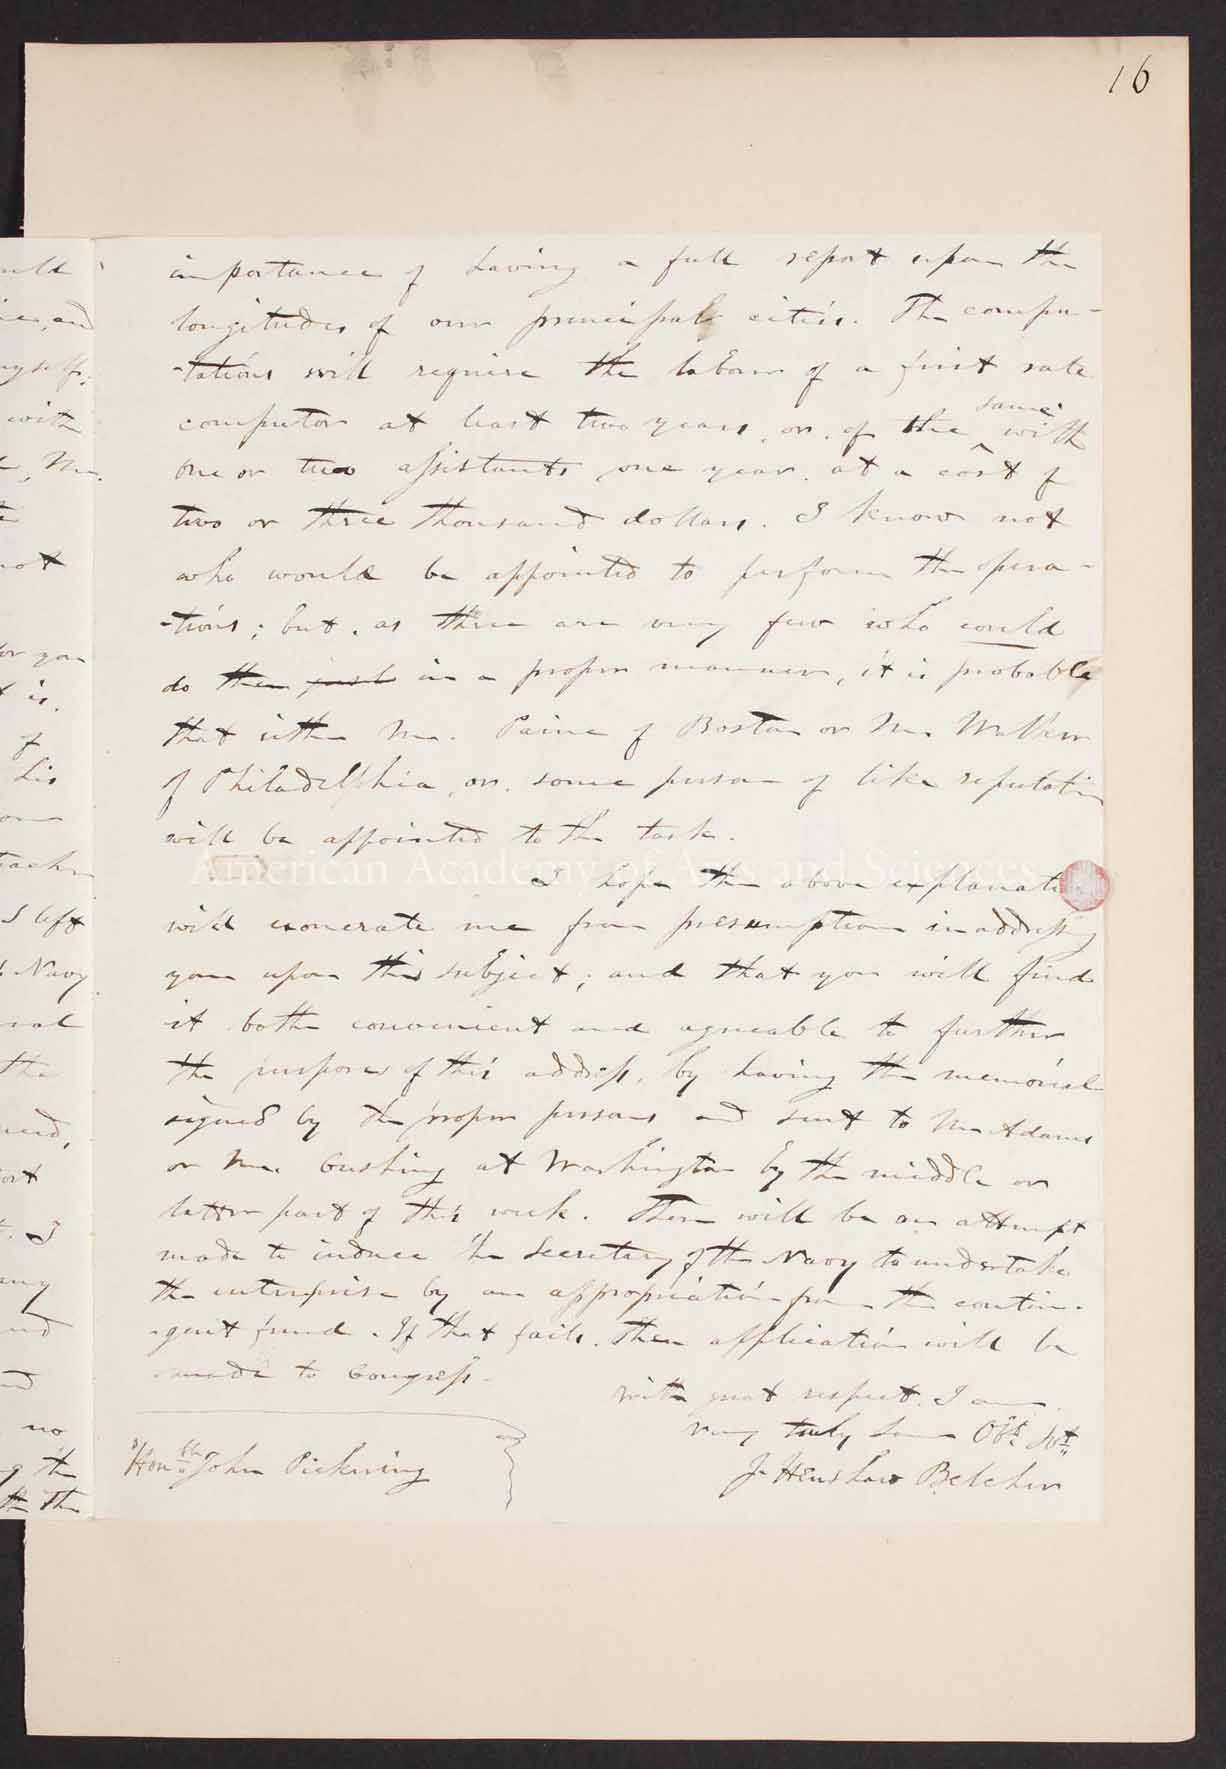 16
importance of having a full report upon the
longitudes of our principal cities. The compu-
-tations will require the labour of a first rate
computor at least two years, or, of the same with
one or two assistants one year, at a cost of
two or three thousand dollars. I know not
who would be appointed to perform the opera-
-tions; but, as there are very few who could
do them in a proper manner, it is probable
that either Mr. Paine of Boston or Mr Walker
of Philadelphia, or, some person of like reputation
will be appointed to the task.
American Academy of Arts and Sciences
I hope the above explanation
will exonerate me from presumption in addressing
you upon this subject; and that you will find
it both convenient and agreeable to further
the purposes of this address, by having the memorial
signed by the proper persons and sent to Mr Adams
or Mr. Cushing at Washington by the middle or
latter part of this week. There will be an attempt
made to induce the Secretary of the Navy to undertake
the enterprise by an appropriation from the contin-
-gent fund. If that fails, then application will be
made to Congress.
With great respect, I am
very truly your Obt. Svt.
J. Henshaw Belcher
Honble John Pickering